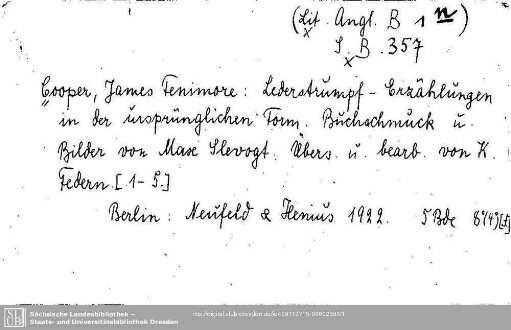 (Lit. Angl. B 1 n)
S. B. 357
Cooper, James Fenimore: Lederstrumpf-Erzählungen
in der ursprünglichen Form. Buchschmuck u.
Bilder von Max Slevogt. Übers. u. bearb. von K.
Federn. [1-5.]
Berlin: Neufeld & Henius 1922. 5 Bde 8°
Sächsische Landesbibliothek –
Staats- und Universitätsbibliothek Dresden